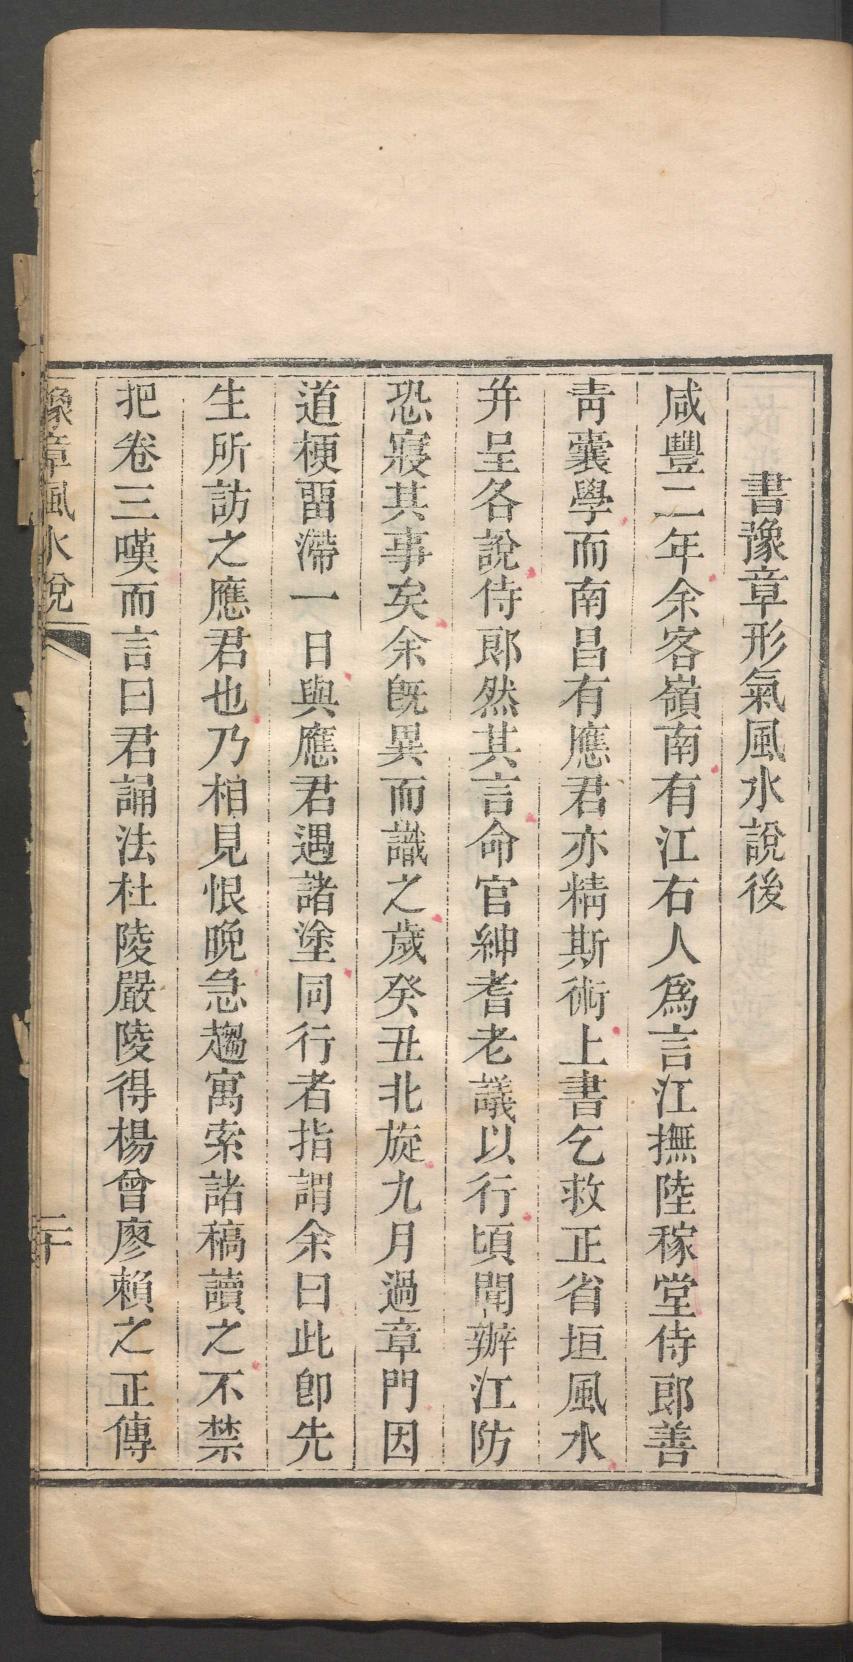 書豫章形氣風水說後
咸豐二年余客嶺南有江右人爲言江撫陸稼堂侍郎善
靑囊學而南昌有應君亦精斯術上書乞救正省垣風水
幷呈各說侍郎然其言命官紳耆老議以行頃聞辦江防
恐寢其事矣余旣異而識之歲癸丑北旋九月過章門因
道梗畱滯一日與應君遇諸塗同行者指謂余曰此卽先
生所訪之應君也乃相見恨晩急趨寓索諸稿讀之不禁
把卷三嘆而言曰君誦法杜陵嚴陵得楊曾廖賴之正傳
豫章風水說
二十